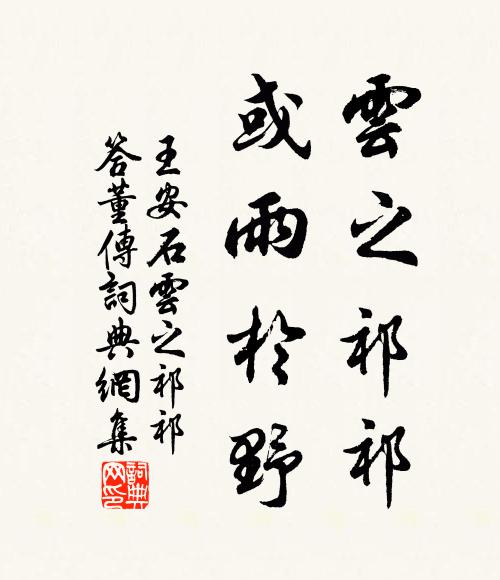 雲之祁祁
或雨於野
王安石雲之祁祁
答董傳詞典網集
詞典
网印